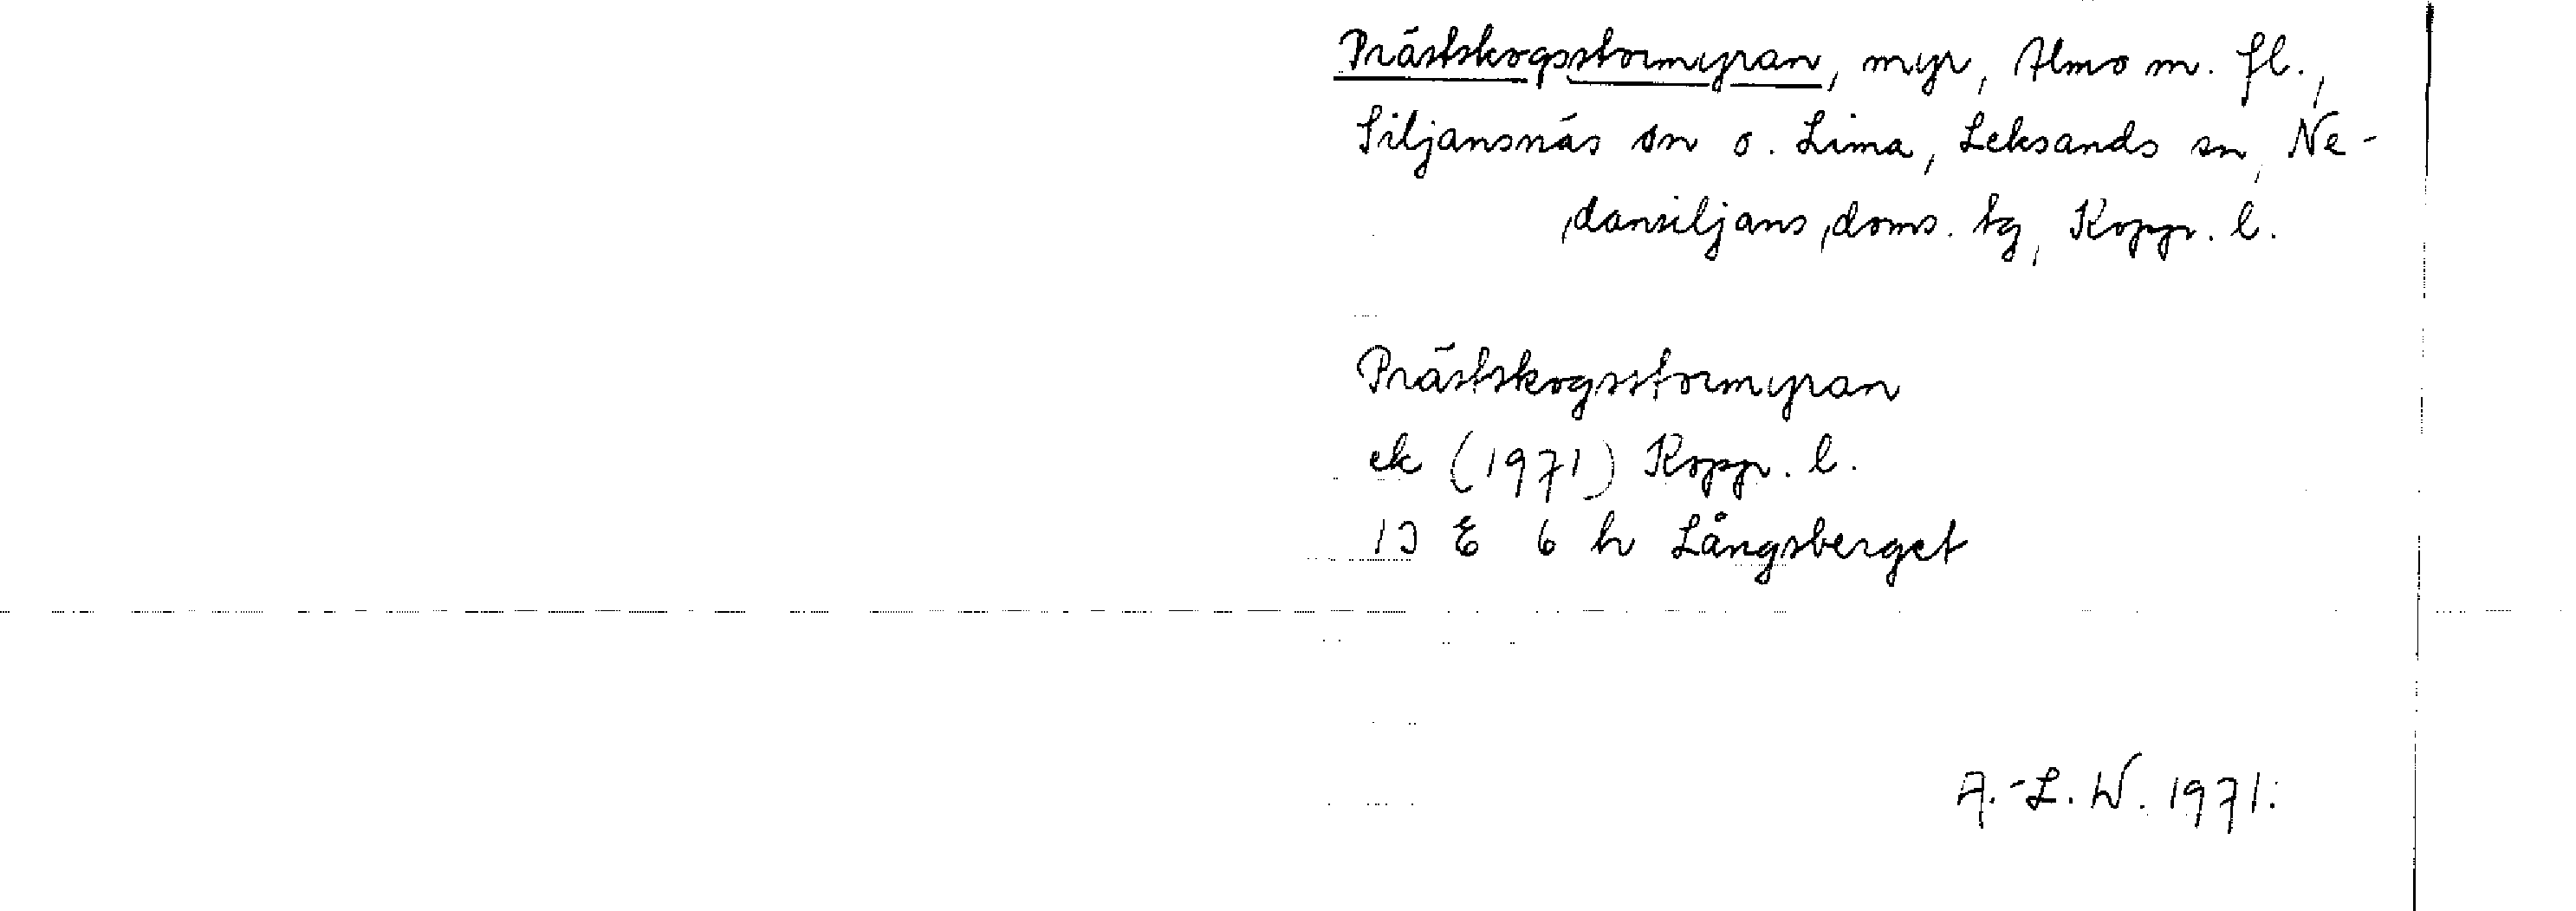 Prästskogsstormyran, myr, Almo m. fl.,
Siljansnäs sn o. Lima, Leksands sn, Ne-
dansiljans doms. tg, Koppr. l.
Prästskogsstormyran
ek (1971) Koppr. l.
13 E 6 h Långsberget
A.-L. W. 1971.